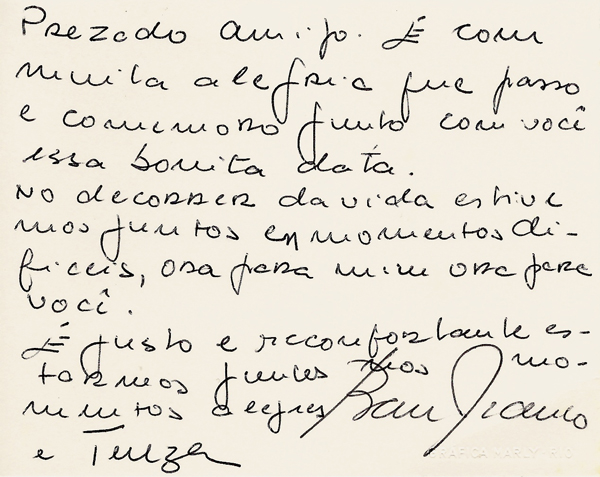 Prezado amigo. É com
muita alegria que passo
e comemoro junto com você
essa bonita data.
No decorrer da vida estive
mos juntos em momentos di-
ficeis, ora para mim ora para
você.
É justo e reconfortante es-
tarmos juntos nos mo-
mentos alegres
e